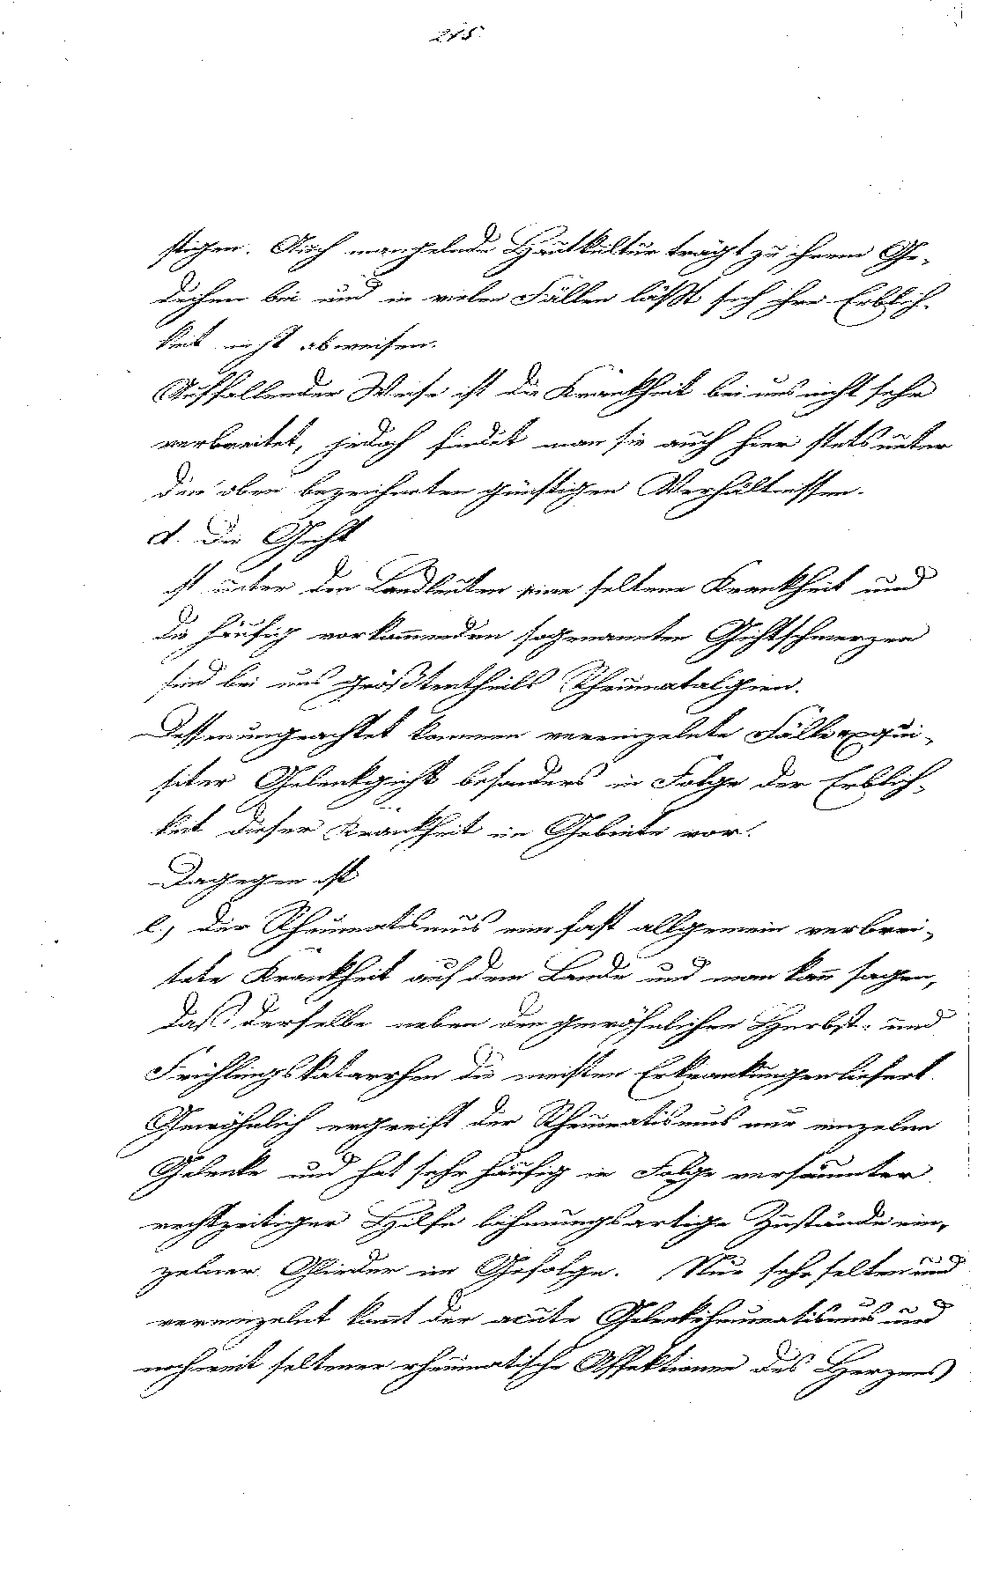 215.
stigen. Auch mangelnde Hautkultur trägt zu ihrem Ge-
deihen bei und in vielen Fällen läßt sich ihre Erblich-
keit nicht abweisen.
Auffallender Weise ist die Krankheit bei uns nicht sehr
verbreitet, jedoch findet man sie auch hier stets unter
den oben bezeichneten günstigen Verhältnissen.
d. Die Gicht
ist unter den Landleuten eine seltene Krankheit und
die häufig vorkommenden sogenannten Gichtschmerzen
sind bei uns größtentheils Rheumatalgien.
Dessenungeachtet kommen vereinzelnte Fälle exqui-
siter Gelenkgicht besonders in Folge der Erblich-
keit dieser Krankheit im Gebiete vor.
Dagegen ist
e.) der Rheumatismus eine fast allgemein verbrei-
tete Krankheit auf dem Lande und man kann sagen,
daß derselbe neben den gewöhnlichen Herbst- und
Frühlingskatarrhen die meisten Erkrankungen liefert.
Gewöhnlich ergreift der Rheumatismus nur einzelne
Gelenke und hat sehr häufig in Folge versäumter
rechtzeitiger Hilfe lähmungsartige Zustände ein-
zelner Glieder im Gefolge. Nur sehr selten und
vereinzelnt kommt der acute Gelenkrheumatismus und
noch weit seltener rheumatische Affektionen des Herzens